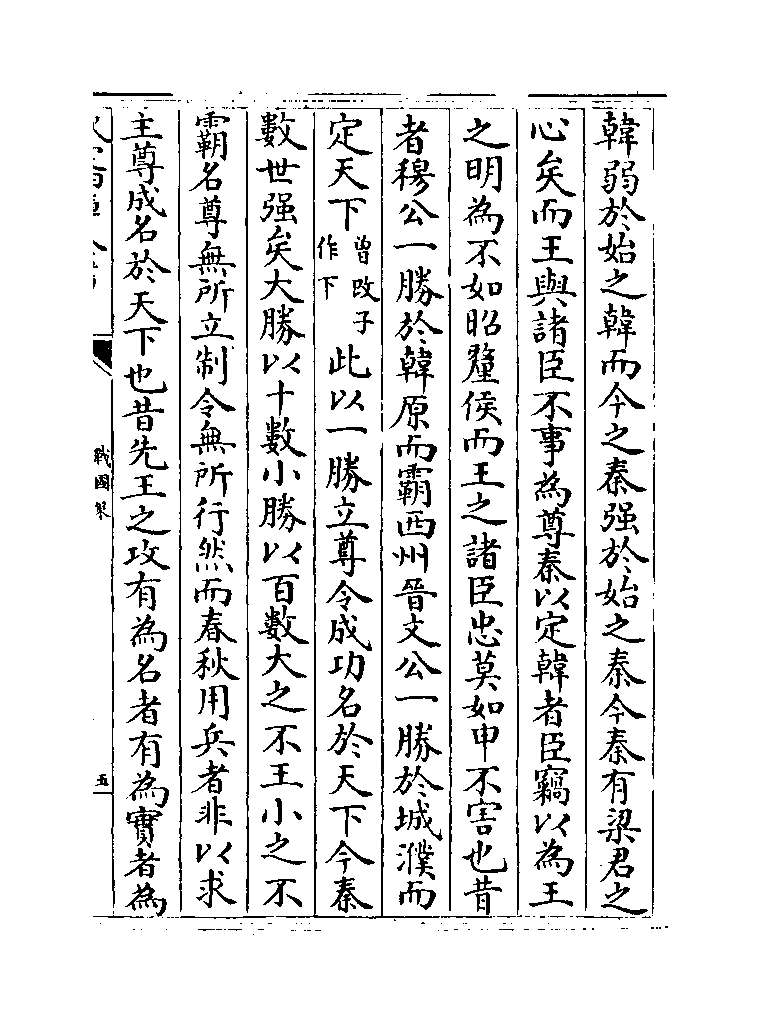 韓弱於始之韓而今之秦强於始之秦今秦有梁君之
心矣而王與諸臣不事為尊秦以定韓者臣竊以為王
之明為不如昭釐侯而王之諸臣忠莫如申不害也昔
者穆公一勝於韓原而霸西州晉文公一勝於城濮而
定天下曾攺子作下此以一勝立尊令成功名於天下今秦
數世强矣大勝以十數小勝以百數大之不王小之不
霸名尊無所立制令無所行然而春秋用兵者非以求
主尊成名於天下也昔先王之攻有為名者有為實者為
戰國策
五